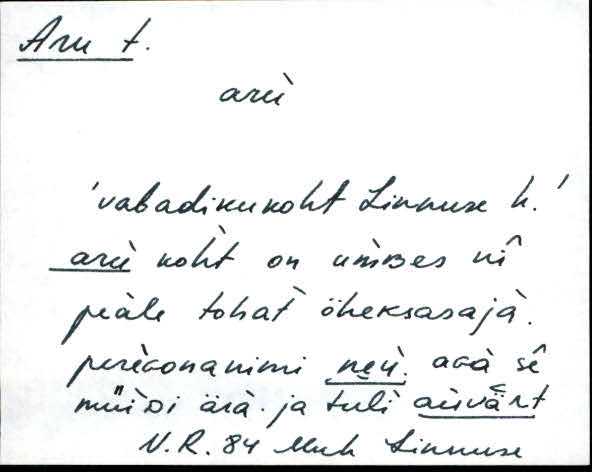 Aru t.
arù
'vabadikukoht Linnuse k.'
arù koht on ùmBes nî
peàle tohat öheksasajà.
perèGonanimi neù. aGà sê
müìDi ärà. ja tulì aùvärt
V.R. 84 Muh Linnuse